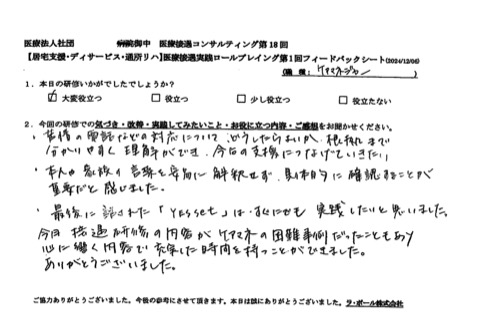 医療法人社団　病院御中　医療接遇コンサルティング第18回
【居宅支援・デイサービス・通所リハ】医療接遇実践ロールプレイング第1回フィードバックシート(2024/12/06)
(職種：ケアマネジャー)
1．本日の研修いかがでしたでしょうか？
☑大変役立つ　□役立つ　□少し役立つ　□役立たない
2．今回の研修での気づき・改善・実践してみたいこと・お役に立つ内容・ご感想をお聞かせください。
・苦情の電話などの対応について どうしたらよいか、根拠まで
分かりやすく理解ができ、今後の支援につなげていきたい。
・本人や家族の言葉を安易に解釈せず、具体的に確認することが
重要だと感じました。
・最後に話された「Yes set」は、すぐにでも実践したいと思いました。
今回 接遇研修の内容がケアマネの困難事例だったこともあり
心に響く内容で充実した時間を持つことができました。
ありがとうございました。
ご協力ありがとうございました。今後の参考にさせて頂きます。本日は誠にありがとうございました。ラ・ポール株式会社